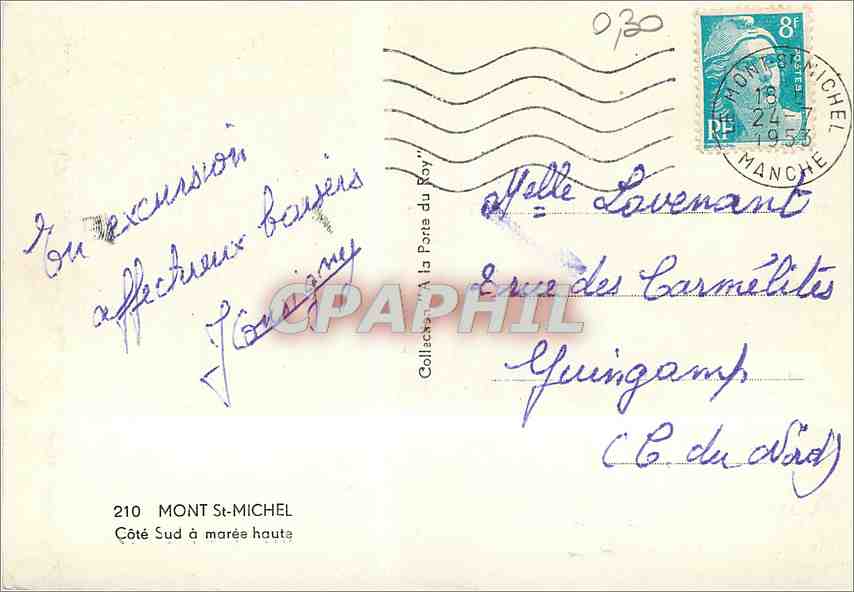 0,30
8F
POSTES
RF
LE MONT-ST-MICHEL
18
24-7
1953
MANCHE
En excursion
affectueux baisers
Melle Lavenant
rue des Carmélites
Guingamp
(C. du Nord)
Collection "A la Porte du Roy"
CPAPHIL
210 MONT St-MICHEL
Côté Sud à marée haute